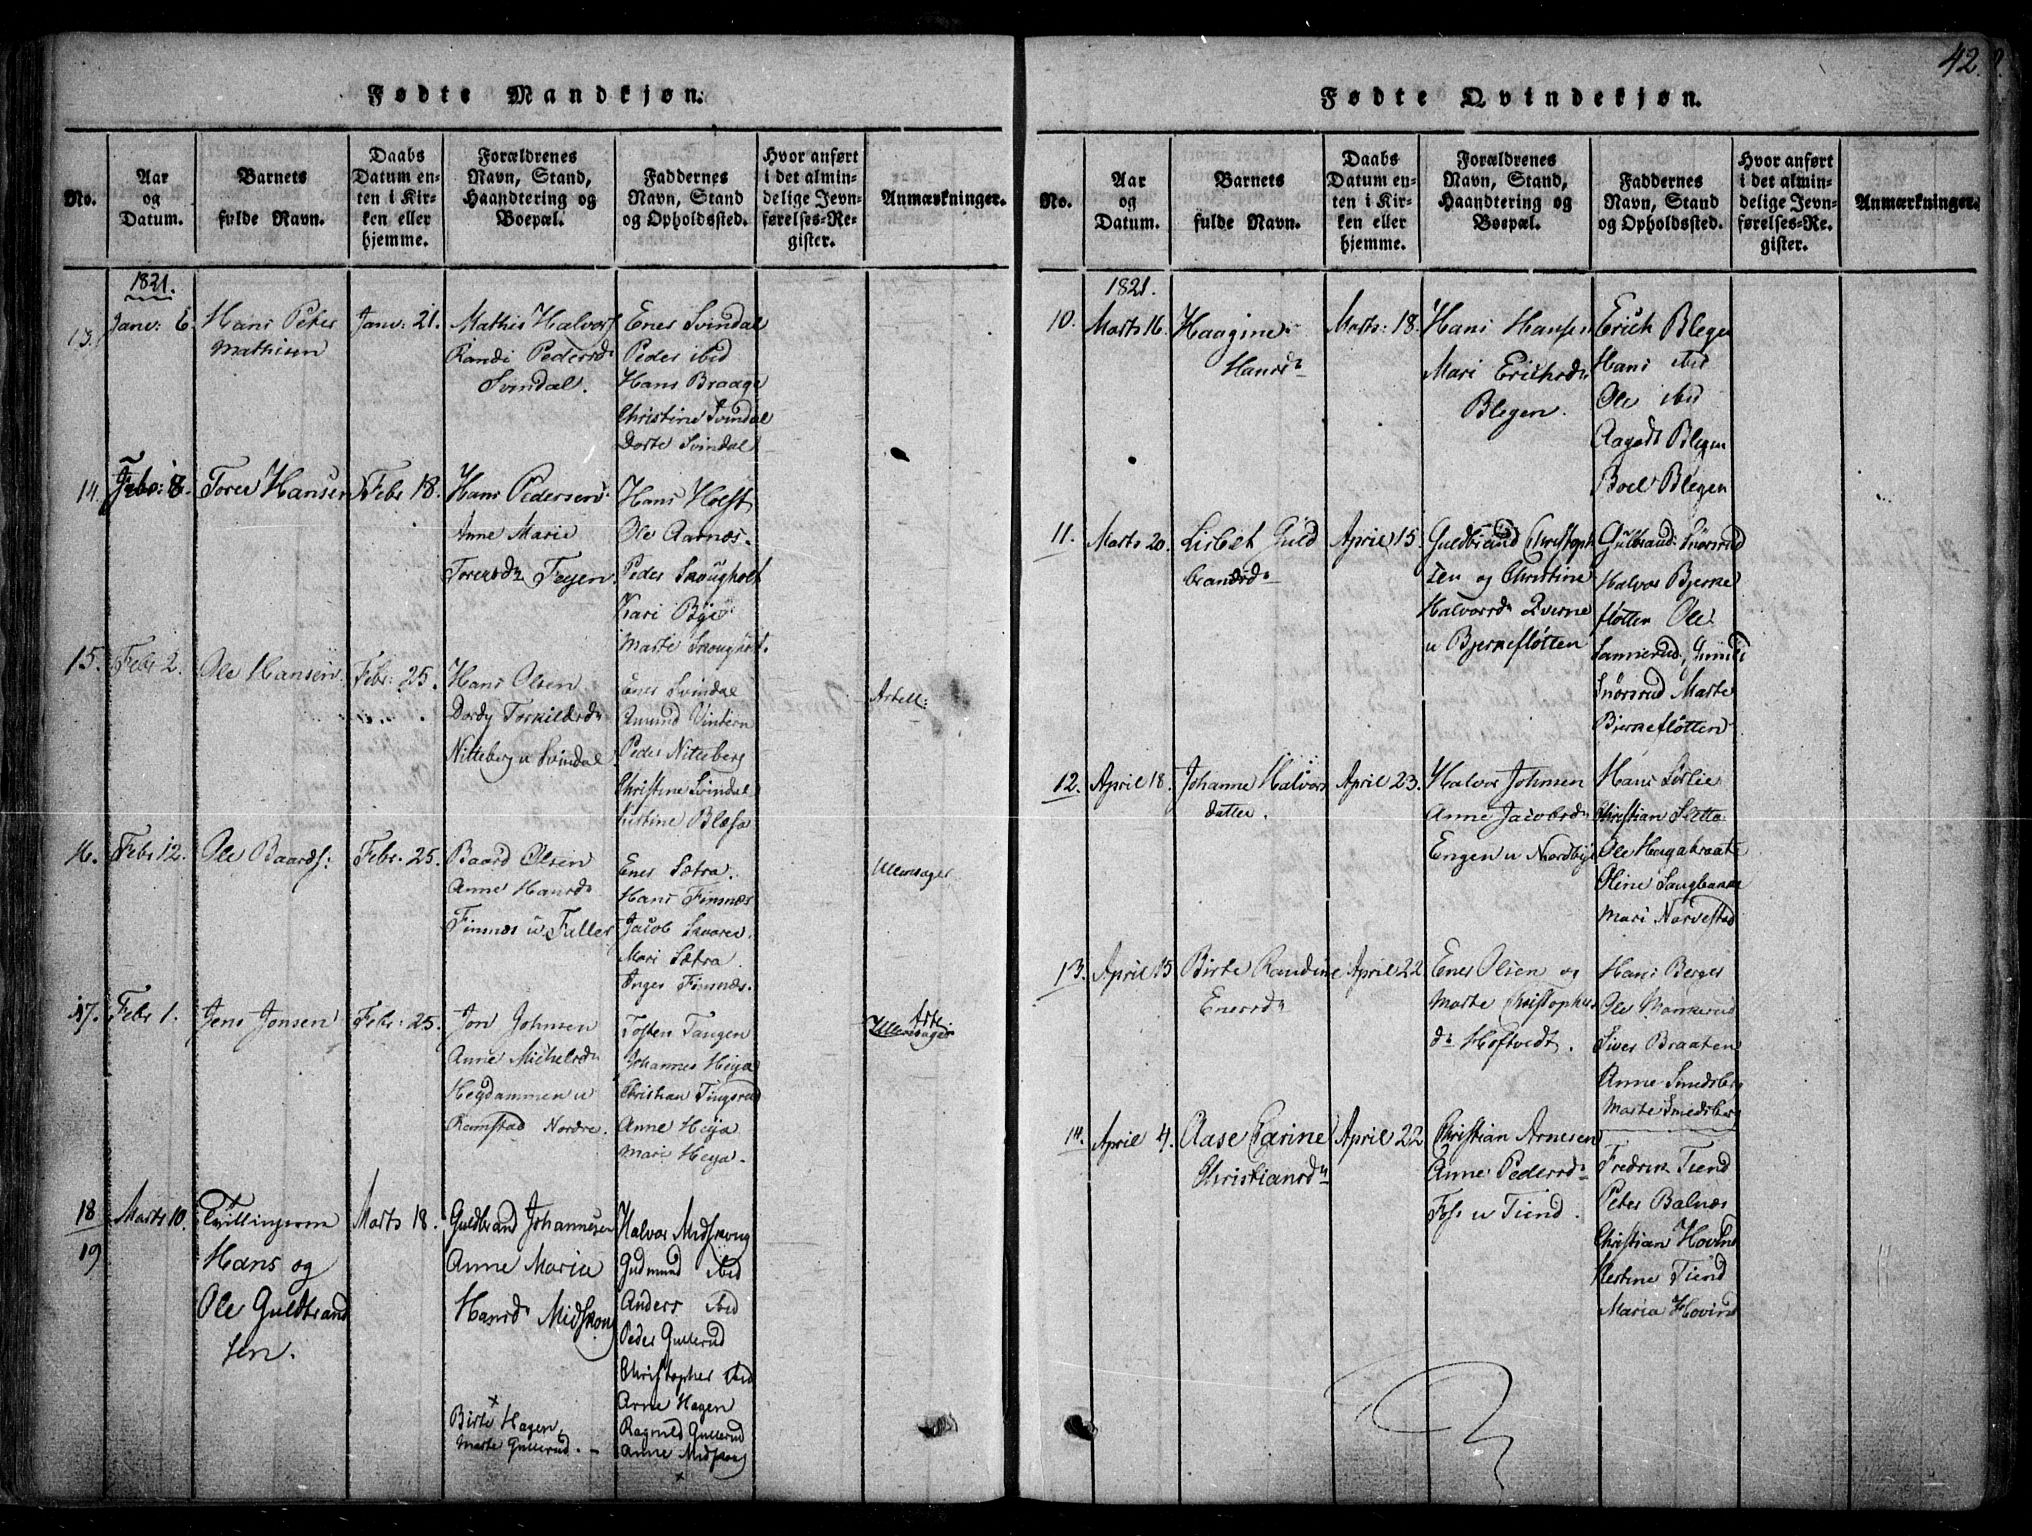 42.
Fødte Mandkjøn.
No.
Aar og Datum.
Barnets fulde Navn.
Daabs Datum enten i Kirken eller hjemme.
Forældrenes Navn, Stand, Haandtering og Boepæl.
Faddernes Navn, Stand og Opholdssted.
Hvor anført i det almindelige Jevnførelses-Register.
Anmærkninger.
1821.
13.
Janv: 6.
Hans Peter
Mathisen
Janv: 21.
Mathis Halvors
Randi Pedersd
Svindal.
Ener Svindal
Peder ibid
Hans Braage
Christine Svindal
Dorte Svindal
14.
Febr: 8.
Torer Hansen
Febr 18.
Hans Pedersen
Anne Marie
Torersdr Fejen.
Hans Holst
Ole Aarnæs.
Peder Skougholt
Kari Bye
Marte Skougholt.
15.
Febr 2.
Ole Hansen
Febr: 25.
Hans Olsen
Dordy Torkildsd
Nitteberg u Svindal
Ener Svindal
Amund Vintern
Peder Nitteberg
Christine Svindal
Kistine Blæsa
Artell:
16.
Febr 12.
Ole Baards:
Febr: 25.
Baard Olsen
Anne Hansd
Finnæs u Faller
Ener Sætra.
Hans Finnæs
Jacob Skarer.
Mari Sætra
Inger Finnæs.
Ullensager
17.
Febr 1.
Jens Jonsen
Febr: 25.
Jon Johnsen
Anne Michelsd
Heydammen u
Ramstad Nordre.
Tosten Tangen
Johannes Heya
Christian Tingsrud
Anne Heya
Mari Heya.
Arte
Ullensager
18
19
Marts 10.
Tvillingerne
Hans og
Ole Guldbrand
sen.
Marts 18.
Guldbrand Johannesen
Anne Maria
Hansd Midskou
Halvor Midskoug
Gudmund ibid
Anders ibid
Peder Gullerud
Christopher ibid
Arne Hagen
Ragnild Gullerud
Anne Midskoug
Birte Hagen,
Marte Gullerud.
Fødte Qvindekjøn.
No.
Aar og Datum.
Barnets fulde Navn.
Daabs Datum enten i Kirken eller hjemme.
Forældrenes Navn, Stand, Haandtering og Boepæl.
Faddernes Navn, Stand og Opholdssted.
Hvor anført i det almindelige Jevnførelses-Register.
Anmærkninger.
1821.
10.
Marts 16.
Haagine
Hansd
Marts: 18.
Hans Hansen
Mari Erichsd
Blegen.
Erich Blegen
Hans ibid
Ole ibid
Aagodt Blegen
Boel Blegen
11.
Marts 20.
Lisbet Guld
brandsd
April 15.
Guldbrand Christoph
sen og Christine
Halvorsd Qverne
u Bjerkefløtten
Gulbrand Snørsrud
Halvor Bjerke
fløtten Ole
Sannerud, Gunild
Snørsrud Marte
Bjerkefløtten
12.
April 18.
Johanne Halvors
datter.
April 23.
Halvor Johnsen
Anne Jacobsd
Engen u Nordbye
Hans Sørlie
Christian Sætta
Ole Haugabraate
Oline Langbakke
Mari Narvestad
13.
April 15
Birte Randine
Enersd
April 22
Ener Olsen og
Marte Christophers
dr Hoftvedt.
Hans Berger
Ole Monkerud
Siver Braaten
Anne Smedsberg
Marte Smedsberg
14.
April 4.
Aase Carine
Christiansd
April 22
Christian Arnesen
Anne Pedersd
Fos u Tiend.
Fredrik Tiend
Peter Balnæs
Christian Hovind
Kestine Tiend
Maria Hovind